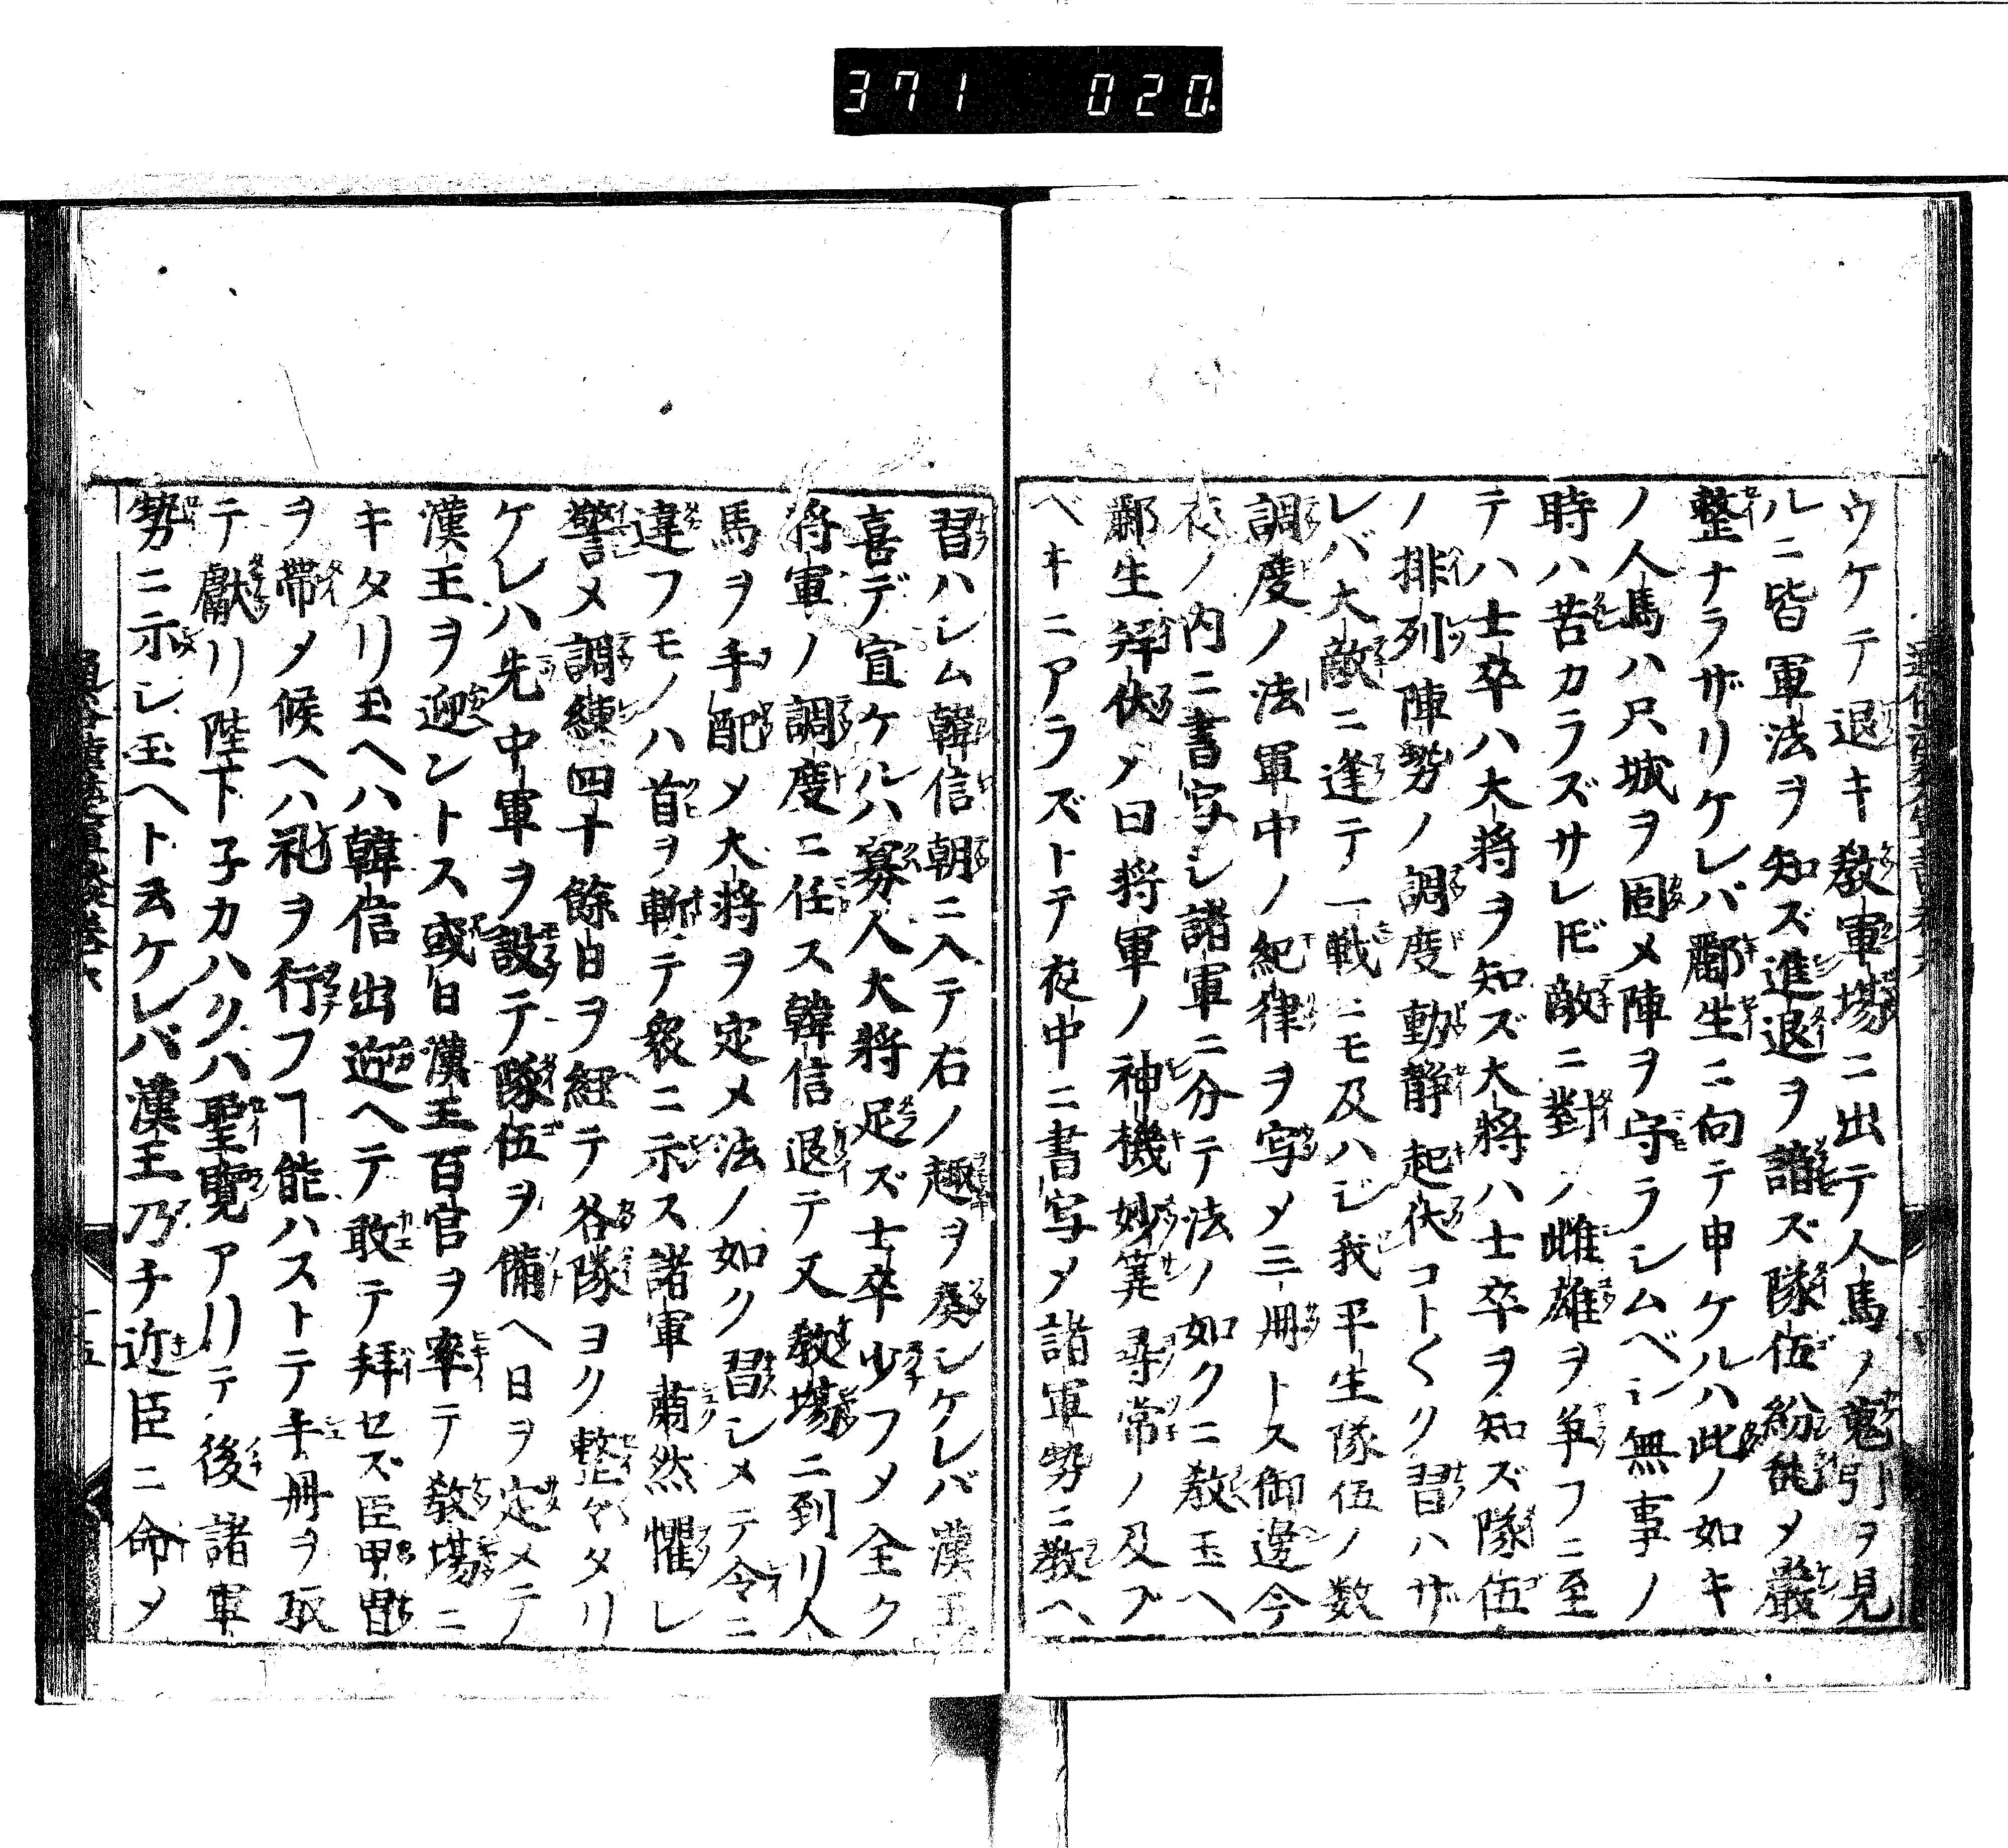 371 020
ウケテ退キ教軍場ニ出テ人馬ノ魁引ヲ見
ルニ皆軍法ヲ知ズ進退ヲ諳ズ隊伍紛乱メ嚴
整ナラザリケレバ酈生ニ向テ申ケルハ此ノ如キ
ノ人馬ハ只城ヲ固メ陣ヲ守ラシムベシ無事ノ
時ハ苦カラズサレ𪜈敵ニ對メ雌雄ヲ争フニ至
テハ士卒ハ大将ヲ知ズ大将ハ士卒ヲ知ズ隊伍
ノ排列陣勢ノ調度動静起伏コト〱ク習ハザ
レバ大敵ニ逢テ一戦ニモ及ハジ我平生隊伍ノ数
調度ノ法軍中ノ紀律ヲ写メ三冊トス御邊今
夜ノ内ニ書写シ諸軍ニ分テ法ノ如クニ教玉ヘ
酈生拜伏メ曰将軍ノ神機妙筭尋常ノ及ブ
ベキニアラズトテ夜中ニ書写メ諸軍勢ニ教ヘ
習ハシム韓信朝ニ入テ右ノ趣ヲ奏シケレバ漢王
喜デ宣ケルハ寡人大将足ズ士卒少フメ全ク
将軍ノ調度ニ任ス韓信退テ又教場ニ到リ人
馬ヲ手配メ大将ヲ定メ法ノ如ク習シメテ令ニ
違フモノハ首ヲ斬テ衆ニ示ス諸軍肅然懼レ
警メ調練四十餘日ヲ經テ各隊ヨク整ヽタリ
ケレハ先中軍ヲ設テ隊伍ヲ備ヘ日ヲ定メテ
漢王ヲ迎ントス或日漢王百官ヲ率テ教場ニ
キタリ玉ヘハ韓信出迎ヘテ敢テ拜セズ臣甲冑
ヲ帶メ候ヘハ礼ヲ行フヿ能ハストテ手冊ヲ取
テ獻リ陛下子カハクハ聖覽アリテ後諸軍
勢ニ示シ玉ヘト云ケレバ漢王乃チ近臣ニ命メ